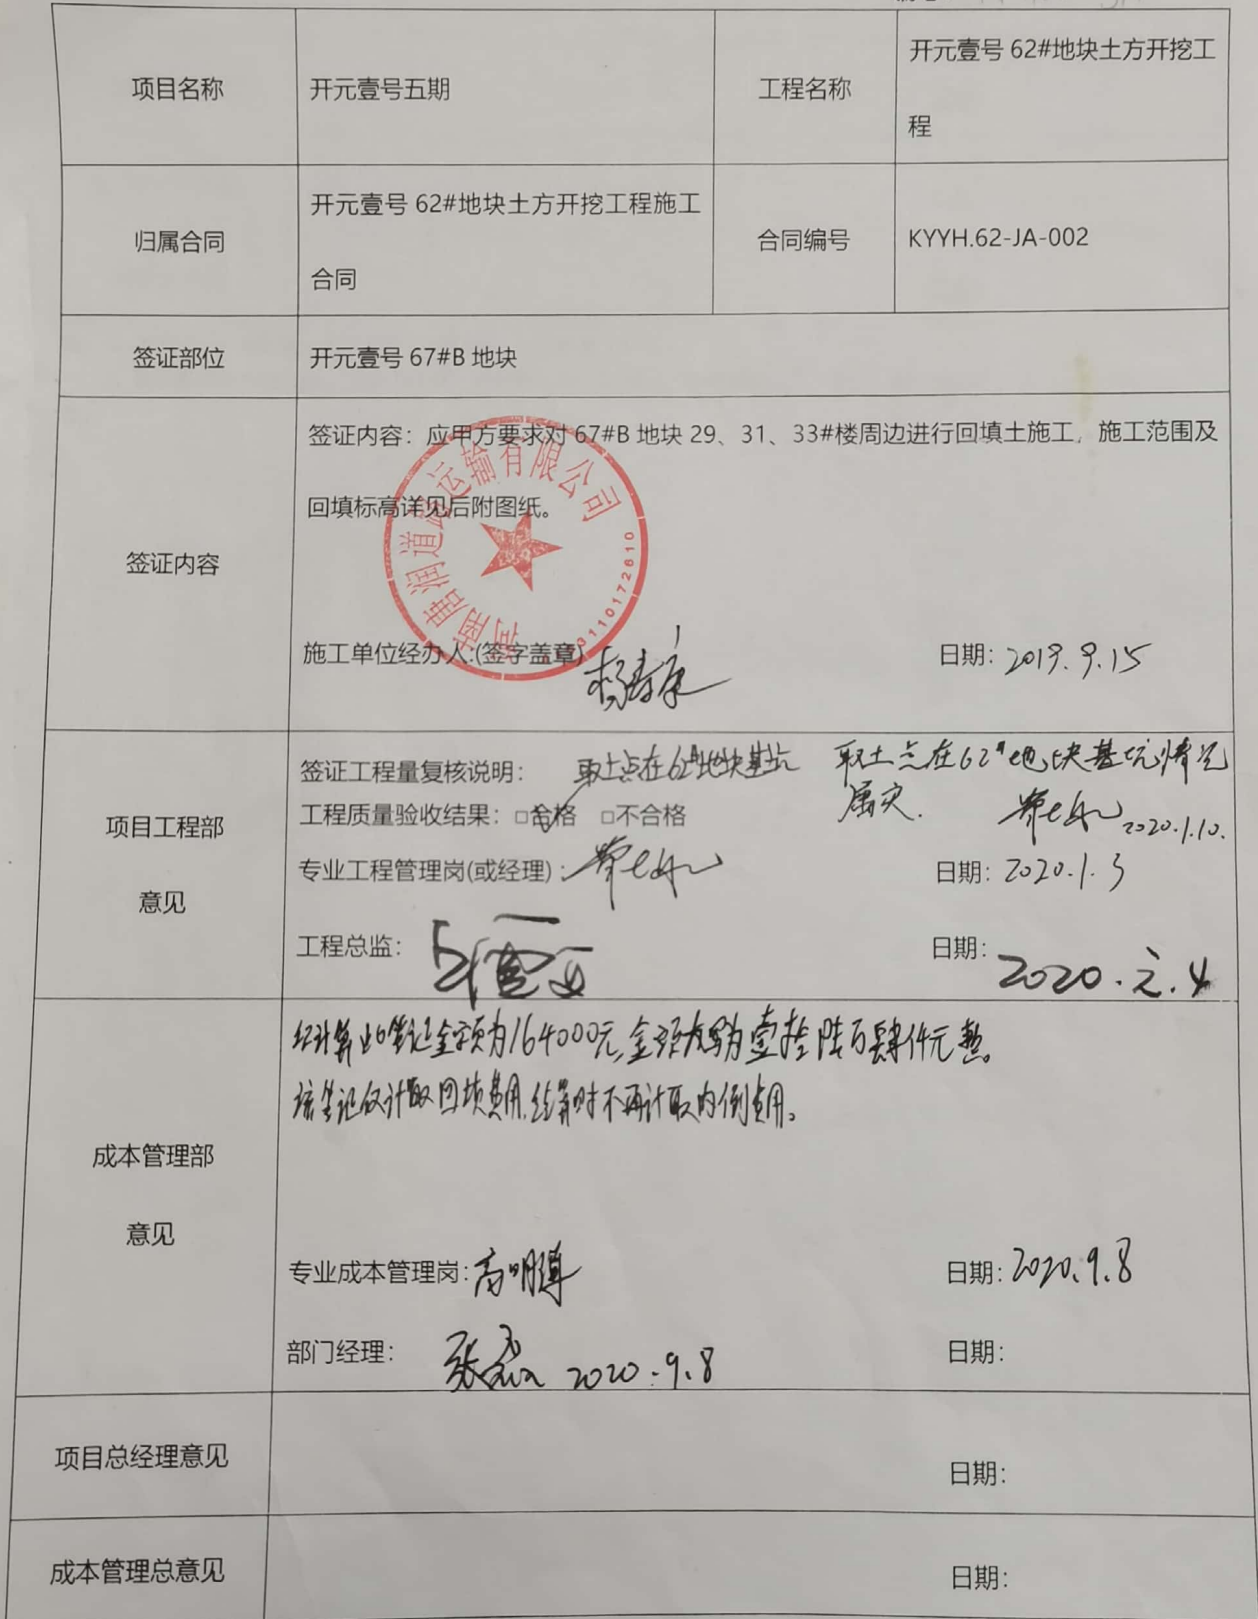 项目名称
开元壹号五期
工程名称
开元壹号 62#地块土方开挖工
程
归属合同
开元壹号 62#地块土方开挖工程施工
合同
合同编号
KYYH.62-JA-002
签证部位
开元壹号 67#B 地块
签证内容
签证内容：应甲方要求对 67#B 地块 29、31、33#楼周边进行回填土施工，施工范围及
回填标高详见后附图纸。
河南唐润道路运输有限公司
施工单位经办人:(签字盖章)
日期: 2019.9.15
项目工程部
意见
签证工程量复核说明： 取土点在62#地块基坑
取土点在62#地块基坑情况
属实.
2020.1.10.
工程质量验收结果：□合格 □不合格
专业工程管理岗(或经理)：
日期: 2020.1.3
工程总监：
日期: 2020.元.4
成本管理部
意见
经计算此签证金额为164000元,金额大写为壹拾陆万肆仟元整。
该签证仅计取回填费用,结算时不再计取内倒费用。
专业成本管理岗: 高明
日期: 2020.9.8
部门经理: 张 2020.9.8
日期:
项目总经理意见
日期:
成本管理总意见
日期: